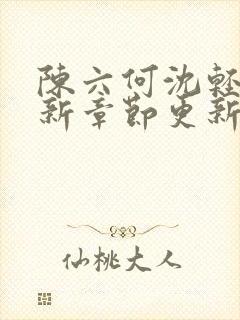 陳六何沈輕
新章節更新
仙桃大人